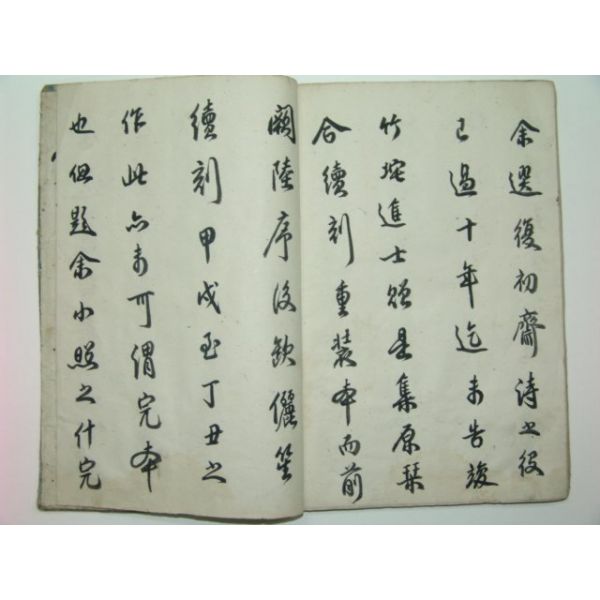 余選復初齋詩之役
已過十年迄未告竣
竹垞進士贈是集原槧
合續刻重裝本而前
闕陸序後欽儷笙
續刻甲戌至丁丑之
作此亦未可謂完本
也但題余小照之什完